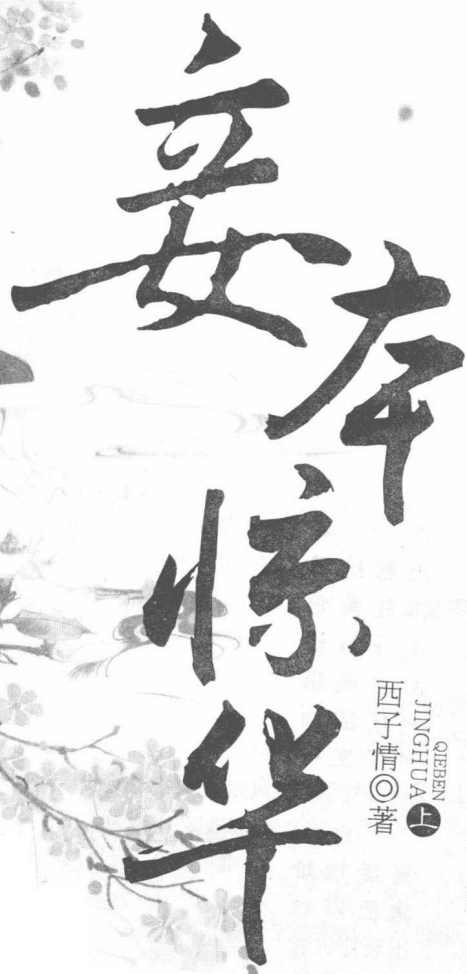 妾本惊华
QIEBEN
JINGHUA 上
西子情◎著